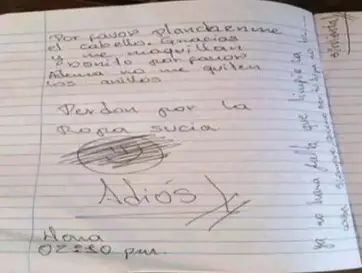 Por favor planchenme
el cabello. Gracias
y me maquillan
bonito por favor
Ademá no me quiten
los anillos
Perdon por la
Ropa sucia
Adiós
Hora
02:30 pm.
ya no hará falta que limpie la